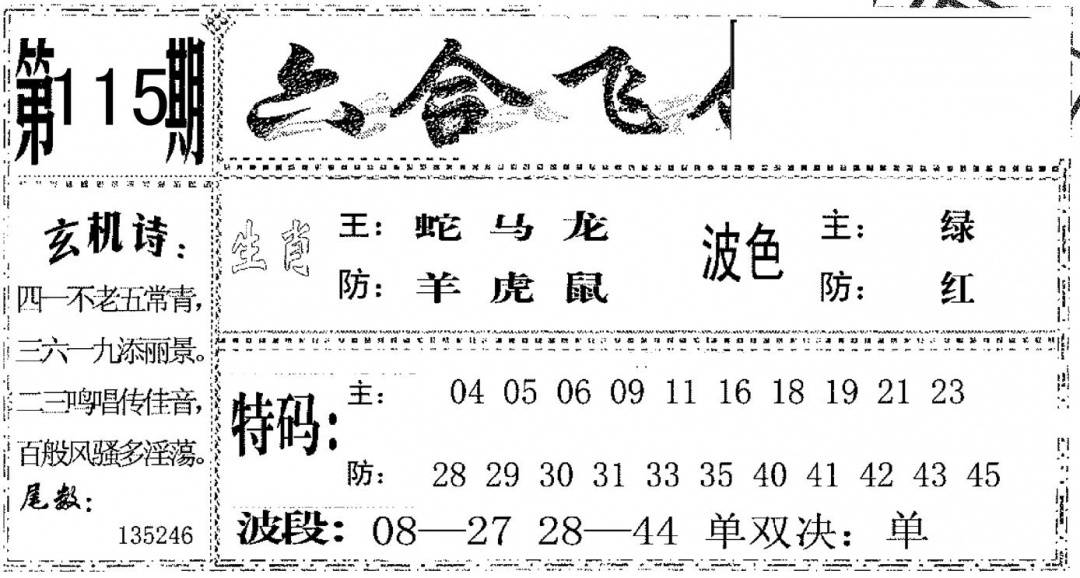 第115期
六合飞
玄机诗：
四一不老五常青，
三六一九添丽景。
二三鸣唱传佳音，
百般风骚多淫荡。
尾数：
135246
生肖
王：蛇 马 龙
防：羊 虎 鼠
波色
主：绿
防：红
特码：
主：04 05 06 09 11 16 18 19 21 23
防：28 29 30 31 33 35 40 41 42 43 45
波段：08—27 28—44 单双决：单